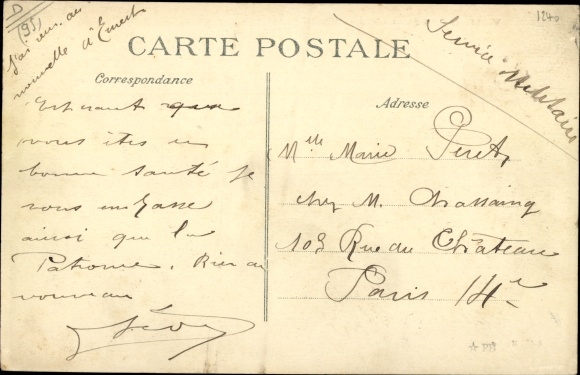 D
(95)
J'ai eu au
nouvelle à Ernest
1240
Service Militaire
CARTE POSTALE
Correspondance
Adresse
Espérant que
vous êtes en
bonne santé je
vous embrasse
ainsi que la
Patronne. Rien de
nouveau
Mlle Marie
chez M. Chassaing
103 Rue du Château
Paris 14e